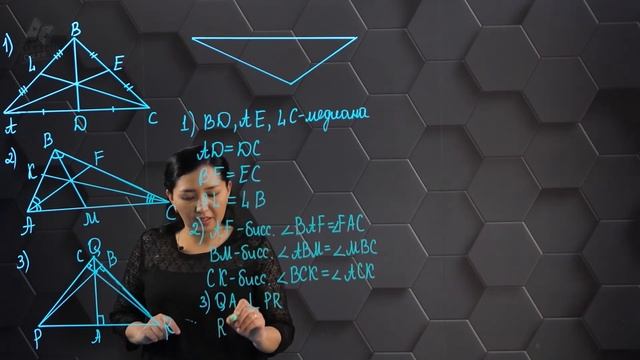 1)
B
L
E
A
D
C
2)
B
K
F
A
M
C
3)
Q
C
B
P
A
1) BD, AE, LC-медиана
AD=DC
BE=EC
= LB
2) AF-бисс. ∠BAF=∠FAC
BM-бисс. ∠ABM=∠MBC
CK-бисс. ∠BCK=∠ACK
3) QA ⊥ PR
R